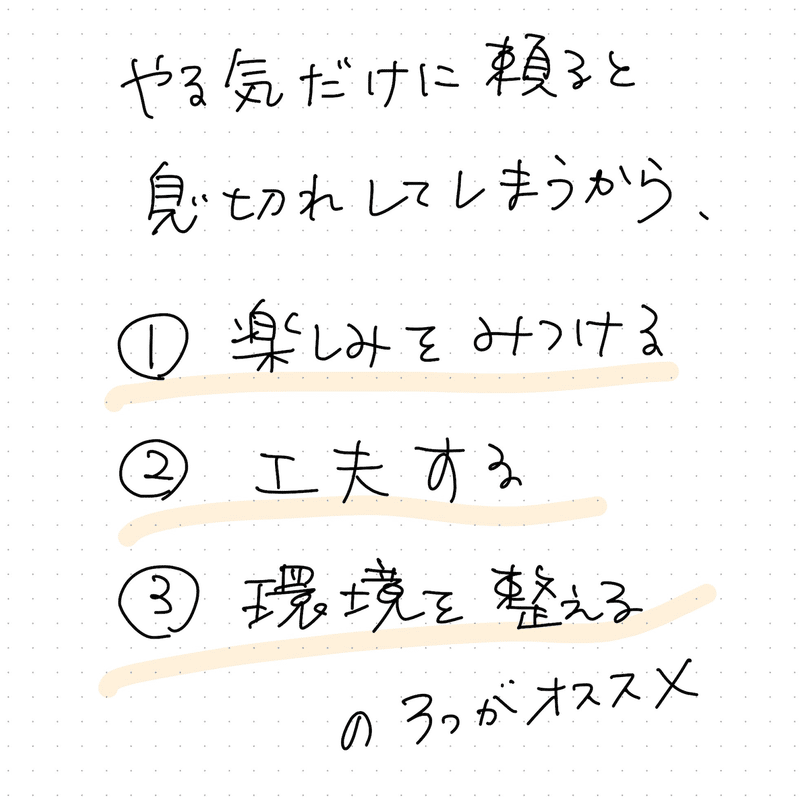 やる気だけに頼ると
息切れしてしまうから、
① 楽しみをみつける
② 工夫する
③ 環境を整える
の3つがオススメ